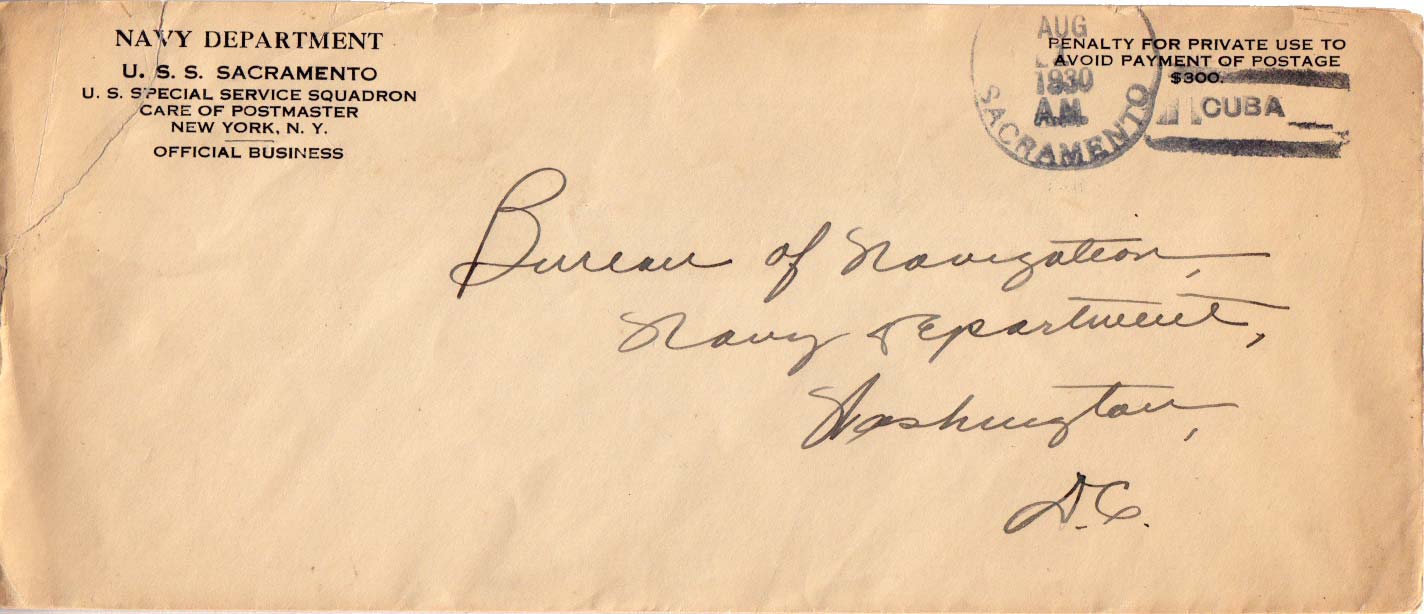 NAVY DEPARTMENT
U. S. S. SACRAMENTO
U. S. SPECIAL SERVICE SQUADRON
CARE OF POSTMASTER
NEW YORK, N. Y.
OFFICIAL BUSINESS
AUG
1930
A.M.
SACRAMENTO
PENALTY FOR PRIVATE USE TO
AVOID PAYMENT OF POSTAGE
$300.
CUBA
Bureau of Navigation,
Navy Department,
Washington,
D.C.